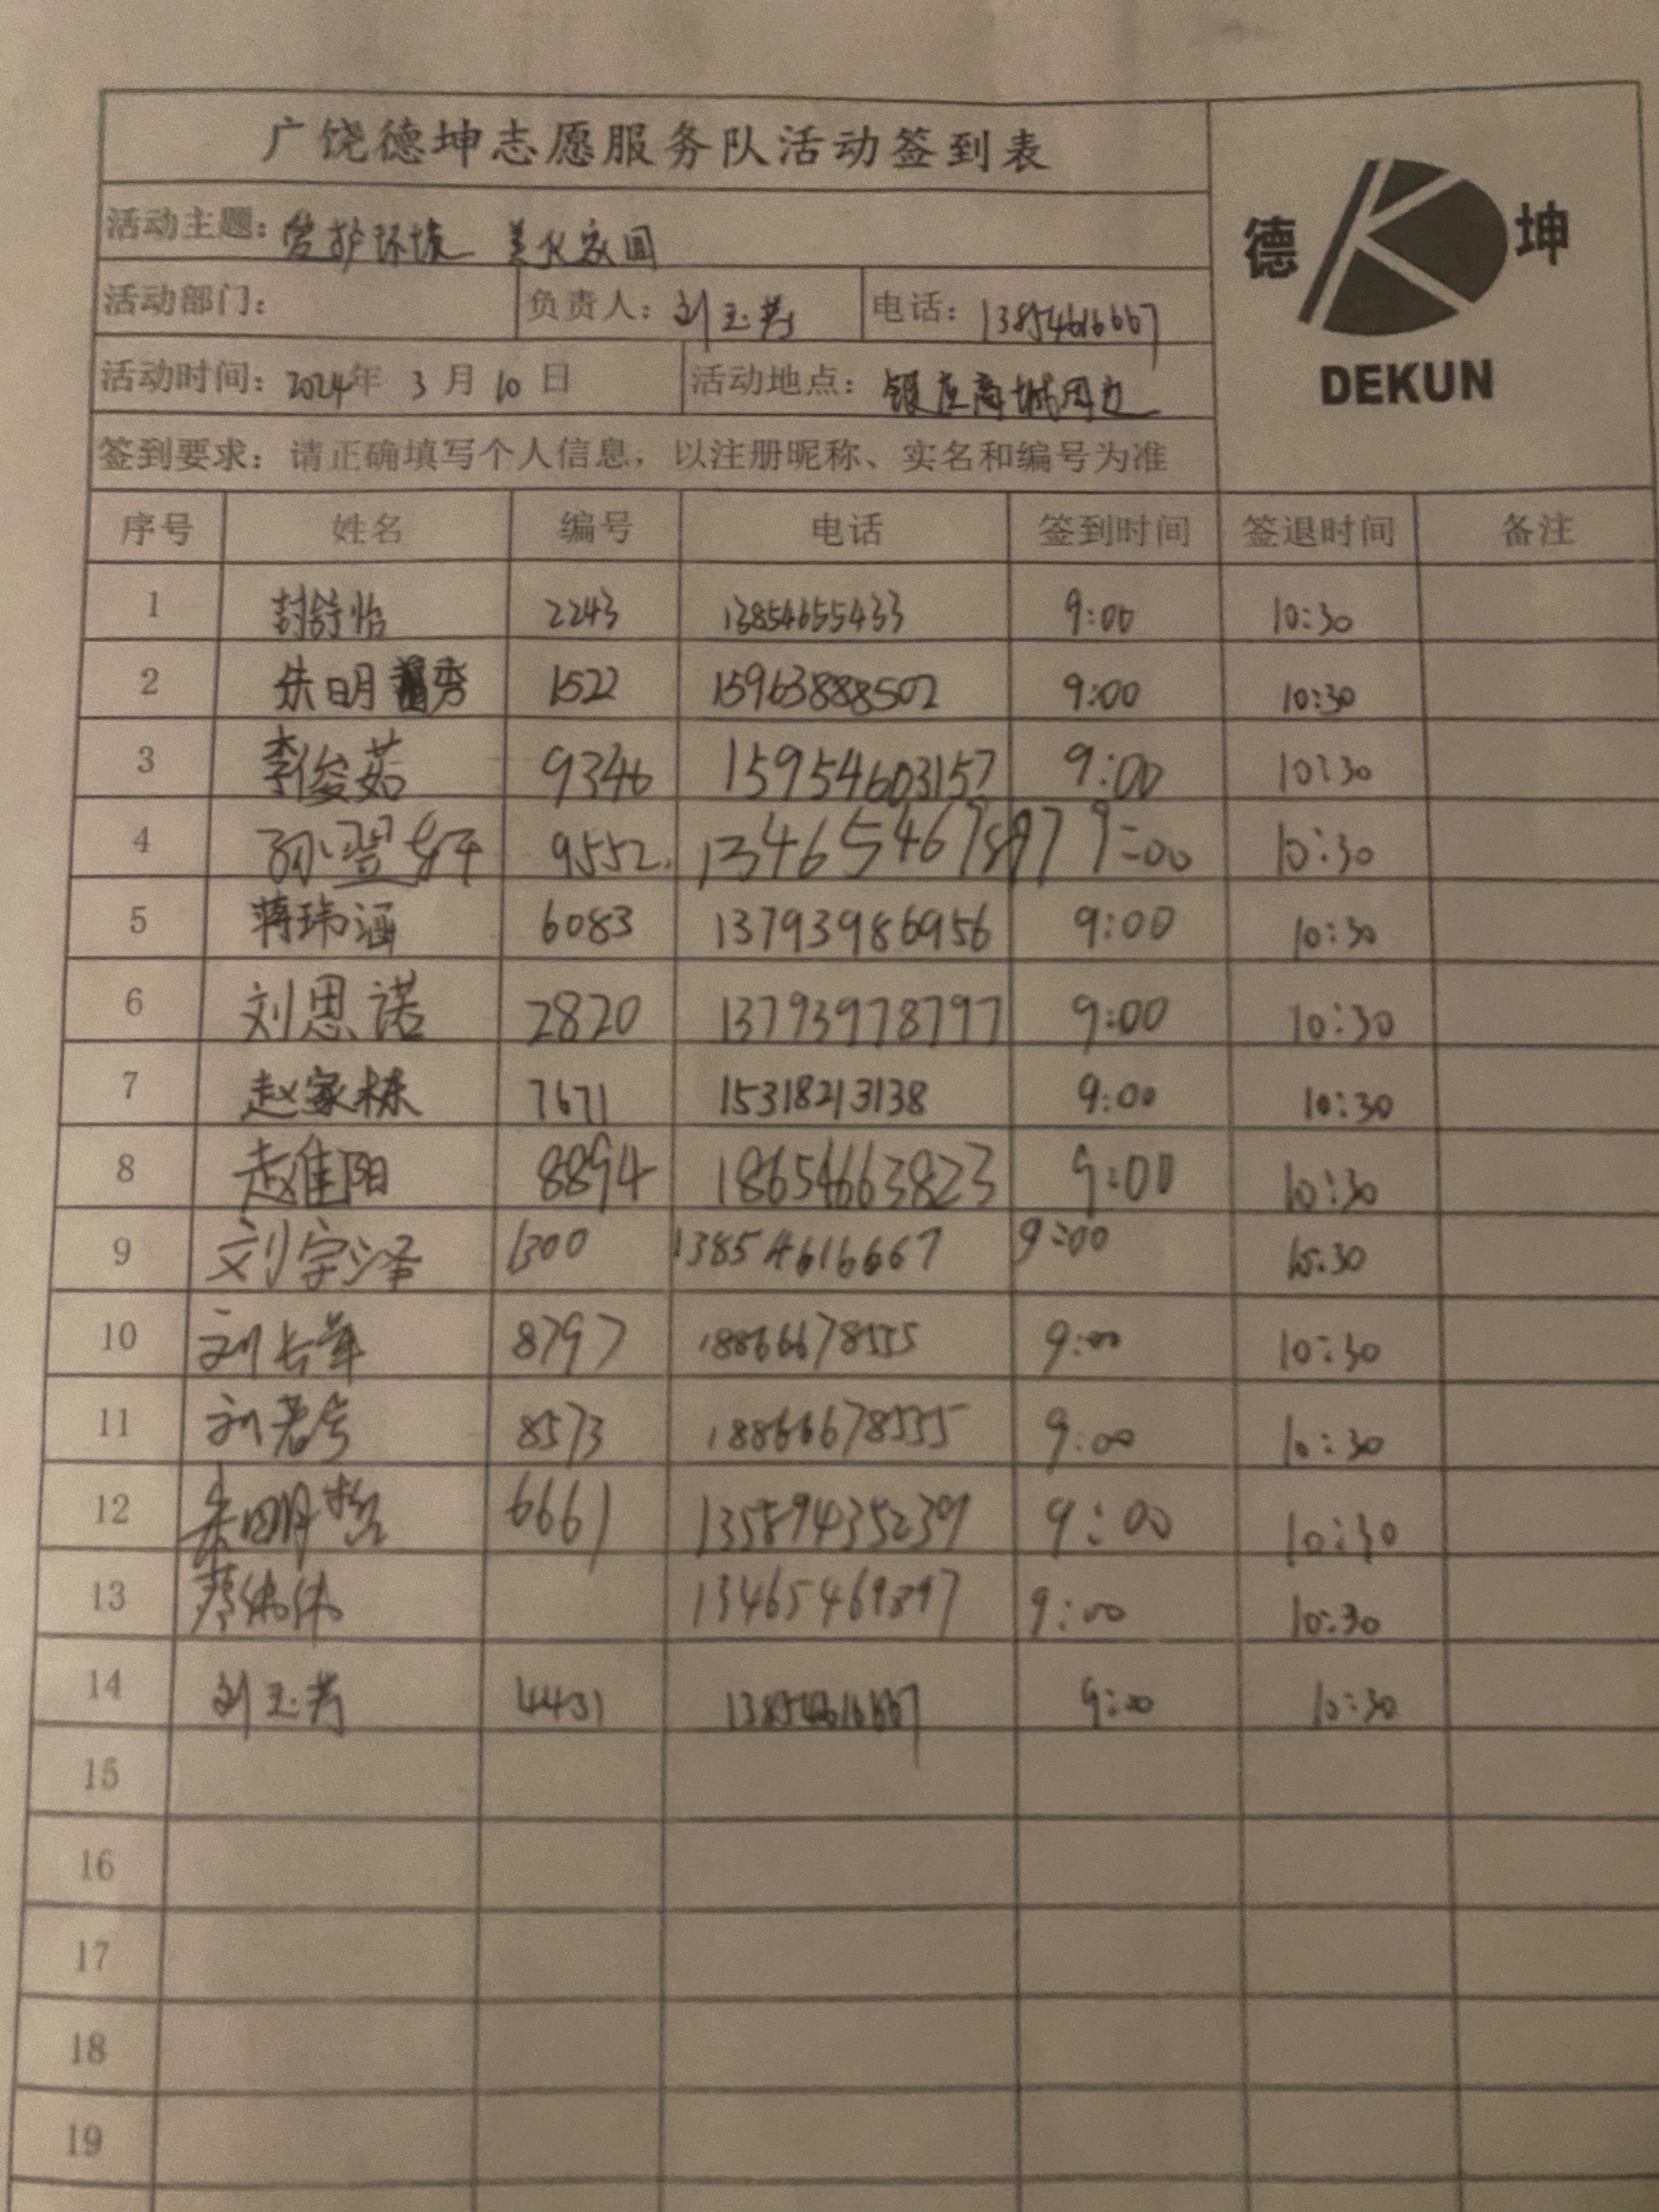 广饶德坤志愿服务队活动签到表
德 坤
DEKUN
活动主题: 爱护环境 美化家园
活动部门: 负责人: 刘玉芳 电话: 13854616667
活动时间: 2024年 3 月 10 日 活动地点: 银座商城周边
签到要求: 请正确填写个人信息, 以注册昵称、实名和编号为准
序号 姓名 编号 电话 签到时间 签退时间 备注
1 封舒怡 2243 13854655433 9:00 10:30
2 朱明秀 1522 15963888502 9:00 10:30
3 李俊茹 9346 15954603157 9:00 10:30
4 9552 9:00 10:30
5 蒋玮涵 6083 13793986956 9:00 10:30
6 刘思诺 2820 13793978797 9:00 10:30
7 赵家栋 7671 15318213138 9:00 10:30
8 赵淮阳 8894 18654663823 9:00 10:30
9 刘宇泽 1300 13854616667 9:00 10:30
10 8797 18866678555 9:00 10:30
11 8573 18866678555 9:00 10:30
12 朱明哲 6661 13589435239 9:00 10:30
13 13465469897 9:00 10:30
14 刘玉芳 4431 13854616667 9:00 10:30
15
16
17
18
19